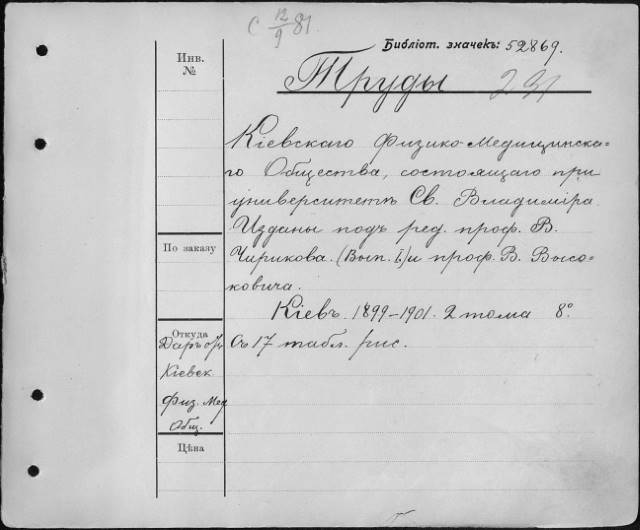 С 12/9 81
Библіот. значекъ: 52869.
Инв.
№
Труды
Кіевскаго Физико-Медицинска-
го Общества, состоящаго при
университетѣ Св. Владиміра
Изданы подъ ред. проф. В.
Чирикова. (Вып. I) и проф. В. Высо-
ковича.
По заказу
Кіевъ. 1899-1901. 2 тома 8°
Съ 17 табл. рис.
Откуда
Даръ
Кіевск
Физ. Мед
Общ.
Цѣна